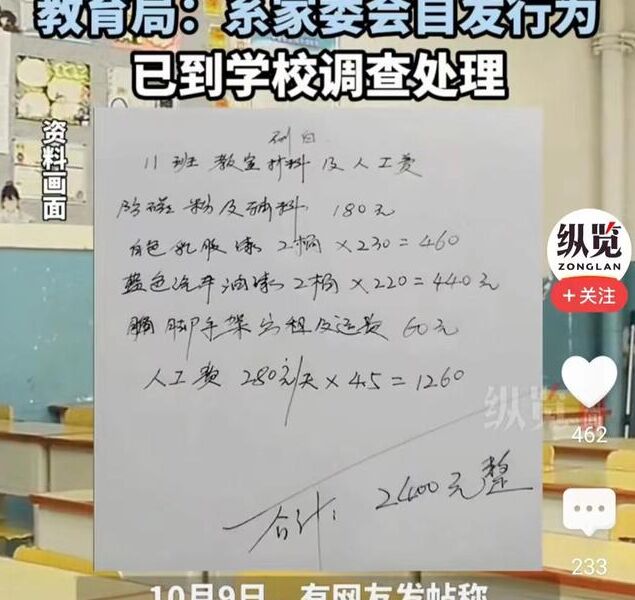 教育局：系家委会自发行为
已到学校调查处理
资料画面
11班 教室材料及人工费
180元
白色乳胶漆 2桶 × 230 = 460
蓝色汽车油漆 2桶 × 220 = 440元
脚手架出租及运费 60元
人工费 280元/天 × 4.5 = 1260
合计: 2400元整
纵览
ZONGLAN
+关注
纵览
462
233
10月9日，有网友发帖称